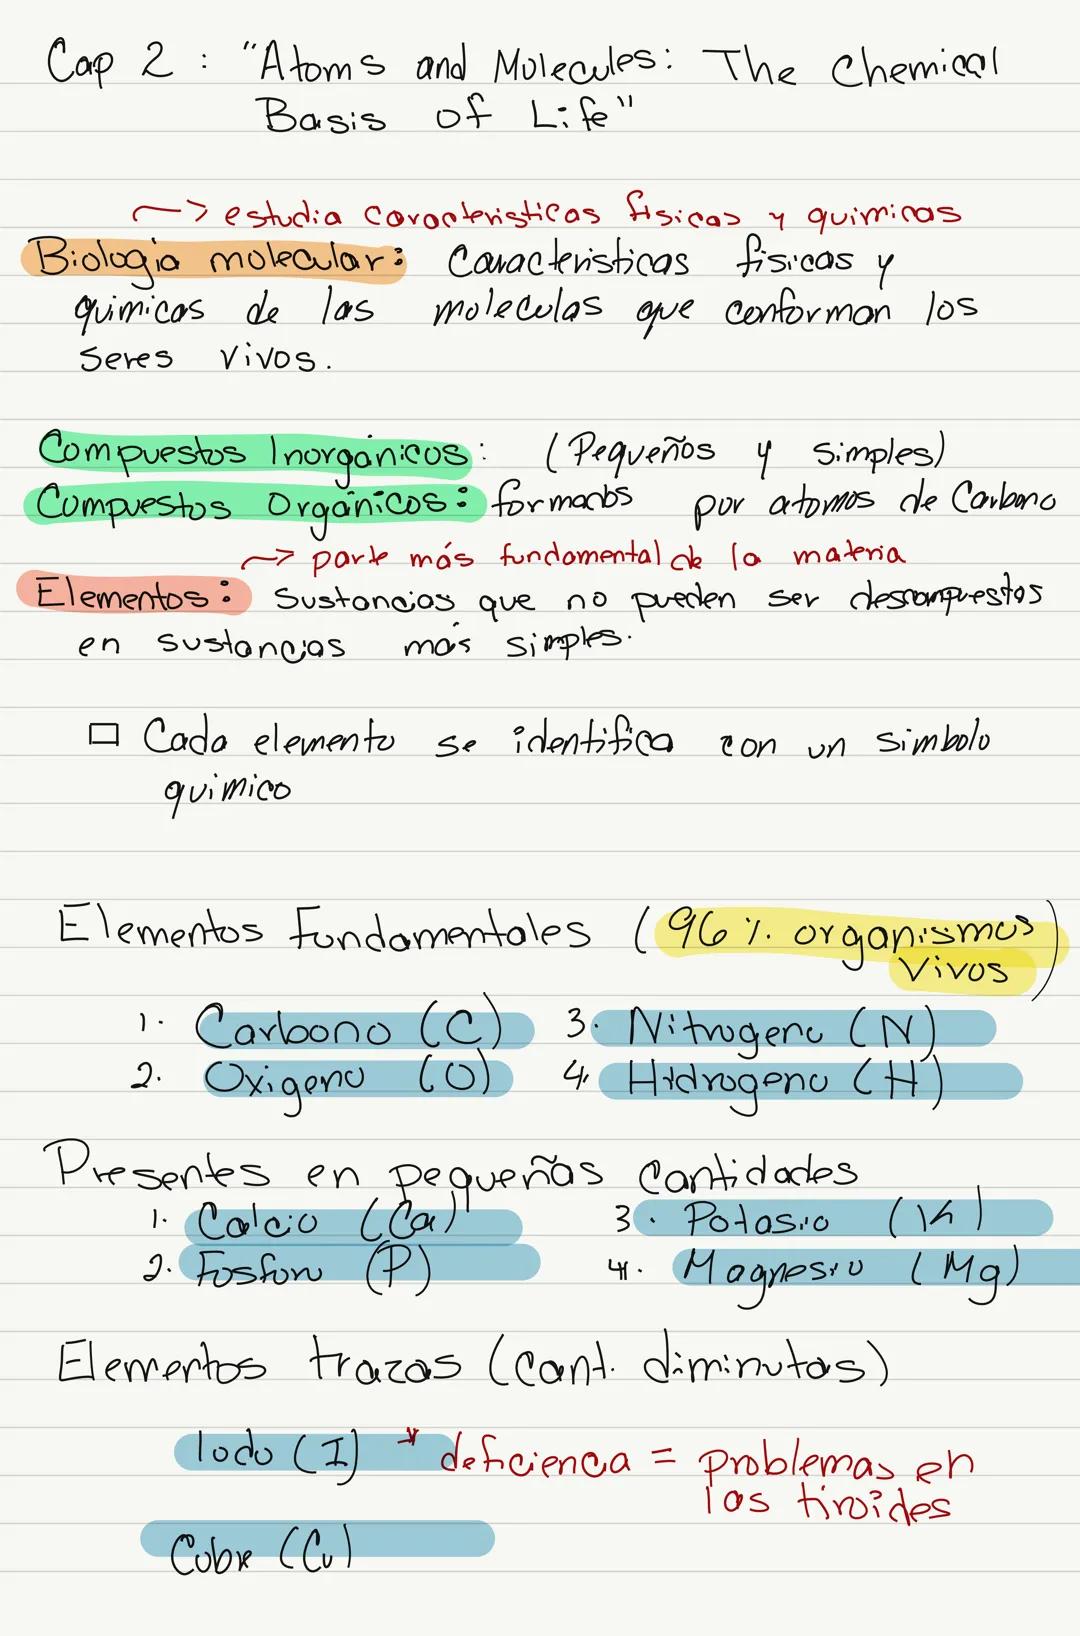 Cap 2 : "Atoms and Molecules: The Chemical
Basis of Life"
~> estudia caracteristicas físicas y quimicas
Biologia molecular: Caracteristicas físicas y
quimicas de las moleculas que conforman los
seres vivos.
Compuestos Inorgánicos: (Pequeños y simples)
Compuestos Orgánicos: formados por atomos de Carbono
~> parte más fundamental de la materia
Elementos: Sustancias que no pueden ser descompuestos
en sustancias más simples.
□ Cada elemento se identifica con un simbolo
quimico
Elementos Fundamentales (96 %. organismos
vivos)
1. Carbono (C) 3. Nitrogeno (N)
2. Oxigeno (O) 4. Hidrogeno (H)
Presentes en pequeñas cantidades
1. Calcio (Ca) 3. Potasio (K)
2. Fosforo (P) 4. Magnesio (Mg)
Elementos trazas (cant. diminutas)
Iodo (I) * deficienca = problemas en
las tiroides
Cobre (Cu)